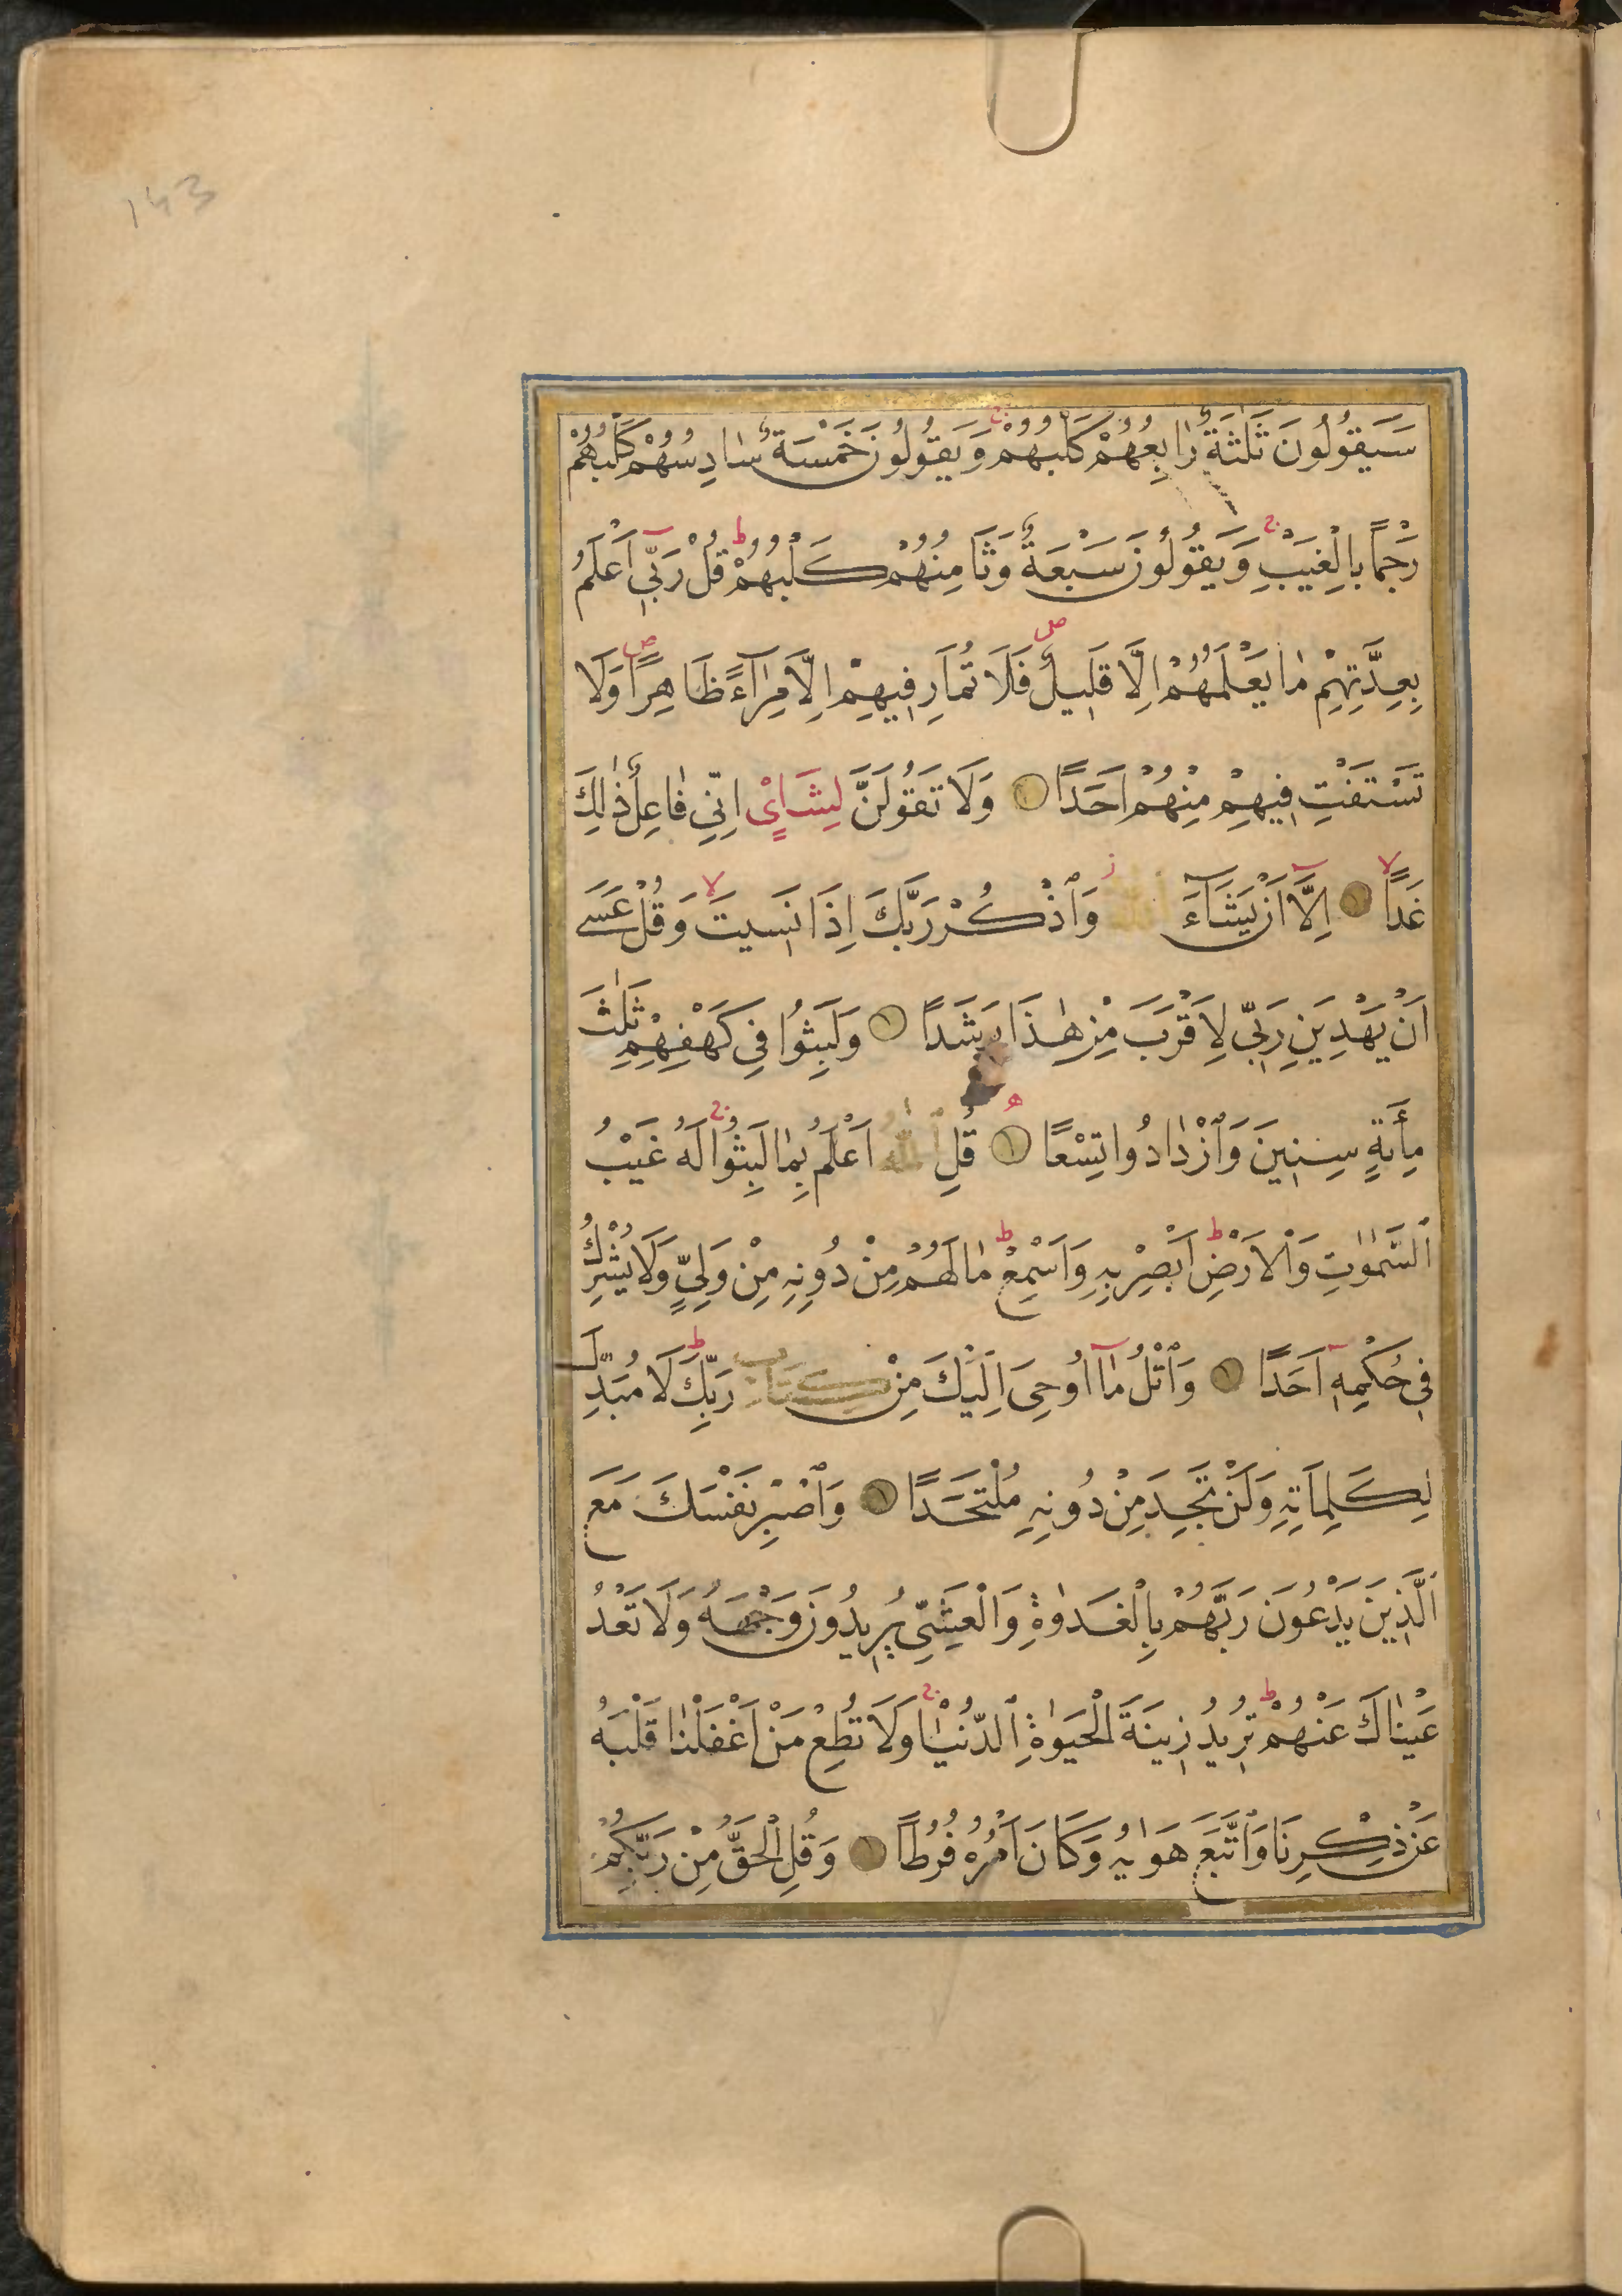 143
سَيَقُولُونَ ثَلٰثَةٌ رٰابِعُهُمْ كَلْبُهُمْ وَيَقُولُونَ خَمْسَةٌ سٰادِسُهُمْ كَلْبُهُمْ
رَجْمًا بِالْغَيْبِ وَيَقُولُونَ سَبْعَةٌ وَثَامِنُهُمْ كَلْبُهُمْ قُلْ رَبِّي اَعْلَمُ
بِعِدَّتِهِمْ مٰا يَعْلَمُهُمْ اِلَّا قَلِيلٌ فَلَا تُمَارِ فِيهِمْ اِلَّا مِرٰآءً ظَاهِرًا وَلَا
تَسْتَفْتِ فِيهِمْ مِنْهُمْ اَحَدًا وَلَا تَقُولَنَّ لِشَاىْءٍ اِنِّي فٰاعِلٌ ذٰلِكَ
غَدًا اِلَّا اَنْ يَشَآءَ اللّٰهُ وَٱذْكُرْ رَبَّكَ اِذَا نَسِيتَ وَقُلْ عَسٰى
اَنْ يَهْدِيَنِ رَبِّي لِاَقْرَبَ مِنْ هٰذَا رَشَدًا وَلَبِثُوا فِي كَهْفِهِمْ ثَلٰثَ
مِأَئةٍ سِنِينَ وَٱزْدٰادُوا تِسْعًا قُلِ ٱللّٰهُ اَعْلَمُ بِمٰا لَبِثُوا لَهُ غَيْبُ
ٱلسَّمٰوٰتِ وَالْاَرْضِ اَبْصِرْ بِهِ وَاَسْمِعْ مٰا لَهُمْ مِنْ دُونِهِ مِنْ وَلِيٍّ وَلَا يُشْرِكُ
فِي حُكْمِهِ اَحَدًا وَٱتْلُ مٰآ اُوحِيَ اِلَيْكَ مِنْ كِتَابِ رَبِّكَ لَا مُبَدِّلَ
لِكَلِمٰاتِهِ وَلَنْ تَجِدَ مِنْ دُونِهِ مُلْتَحَدًا وَٱصْبِرْ نَفْسَكَ مَعَ
ٱلَّذِينَ يَدْعُونَ رَبَّهُمْ بِالْغَدٰوةِ وَالْعَشِيِّ يُرِيدُونَ وَجْهَهُ وَلَا تَعْدُ
عَيْنٰاكَ عَنْهُمْ تُرِيدُ زِينَةَ الْحَيٰوةِ ٱلدُّنْيٰا وَلَا تُطِعْ مَنْ اَغْفَلْنٰا قَلْبَهُ
عَنْ ذِكْرِنَا وَٱتَّبَعَ هَوٰيهُ وَكَانَ اَمْرُهُ فُرُطًا وَقُلِ الْحَقُّ مِنْ رَبِّكُمْ